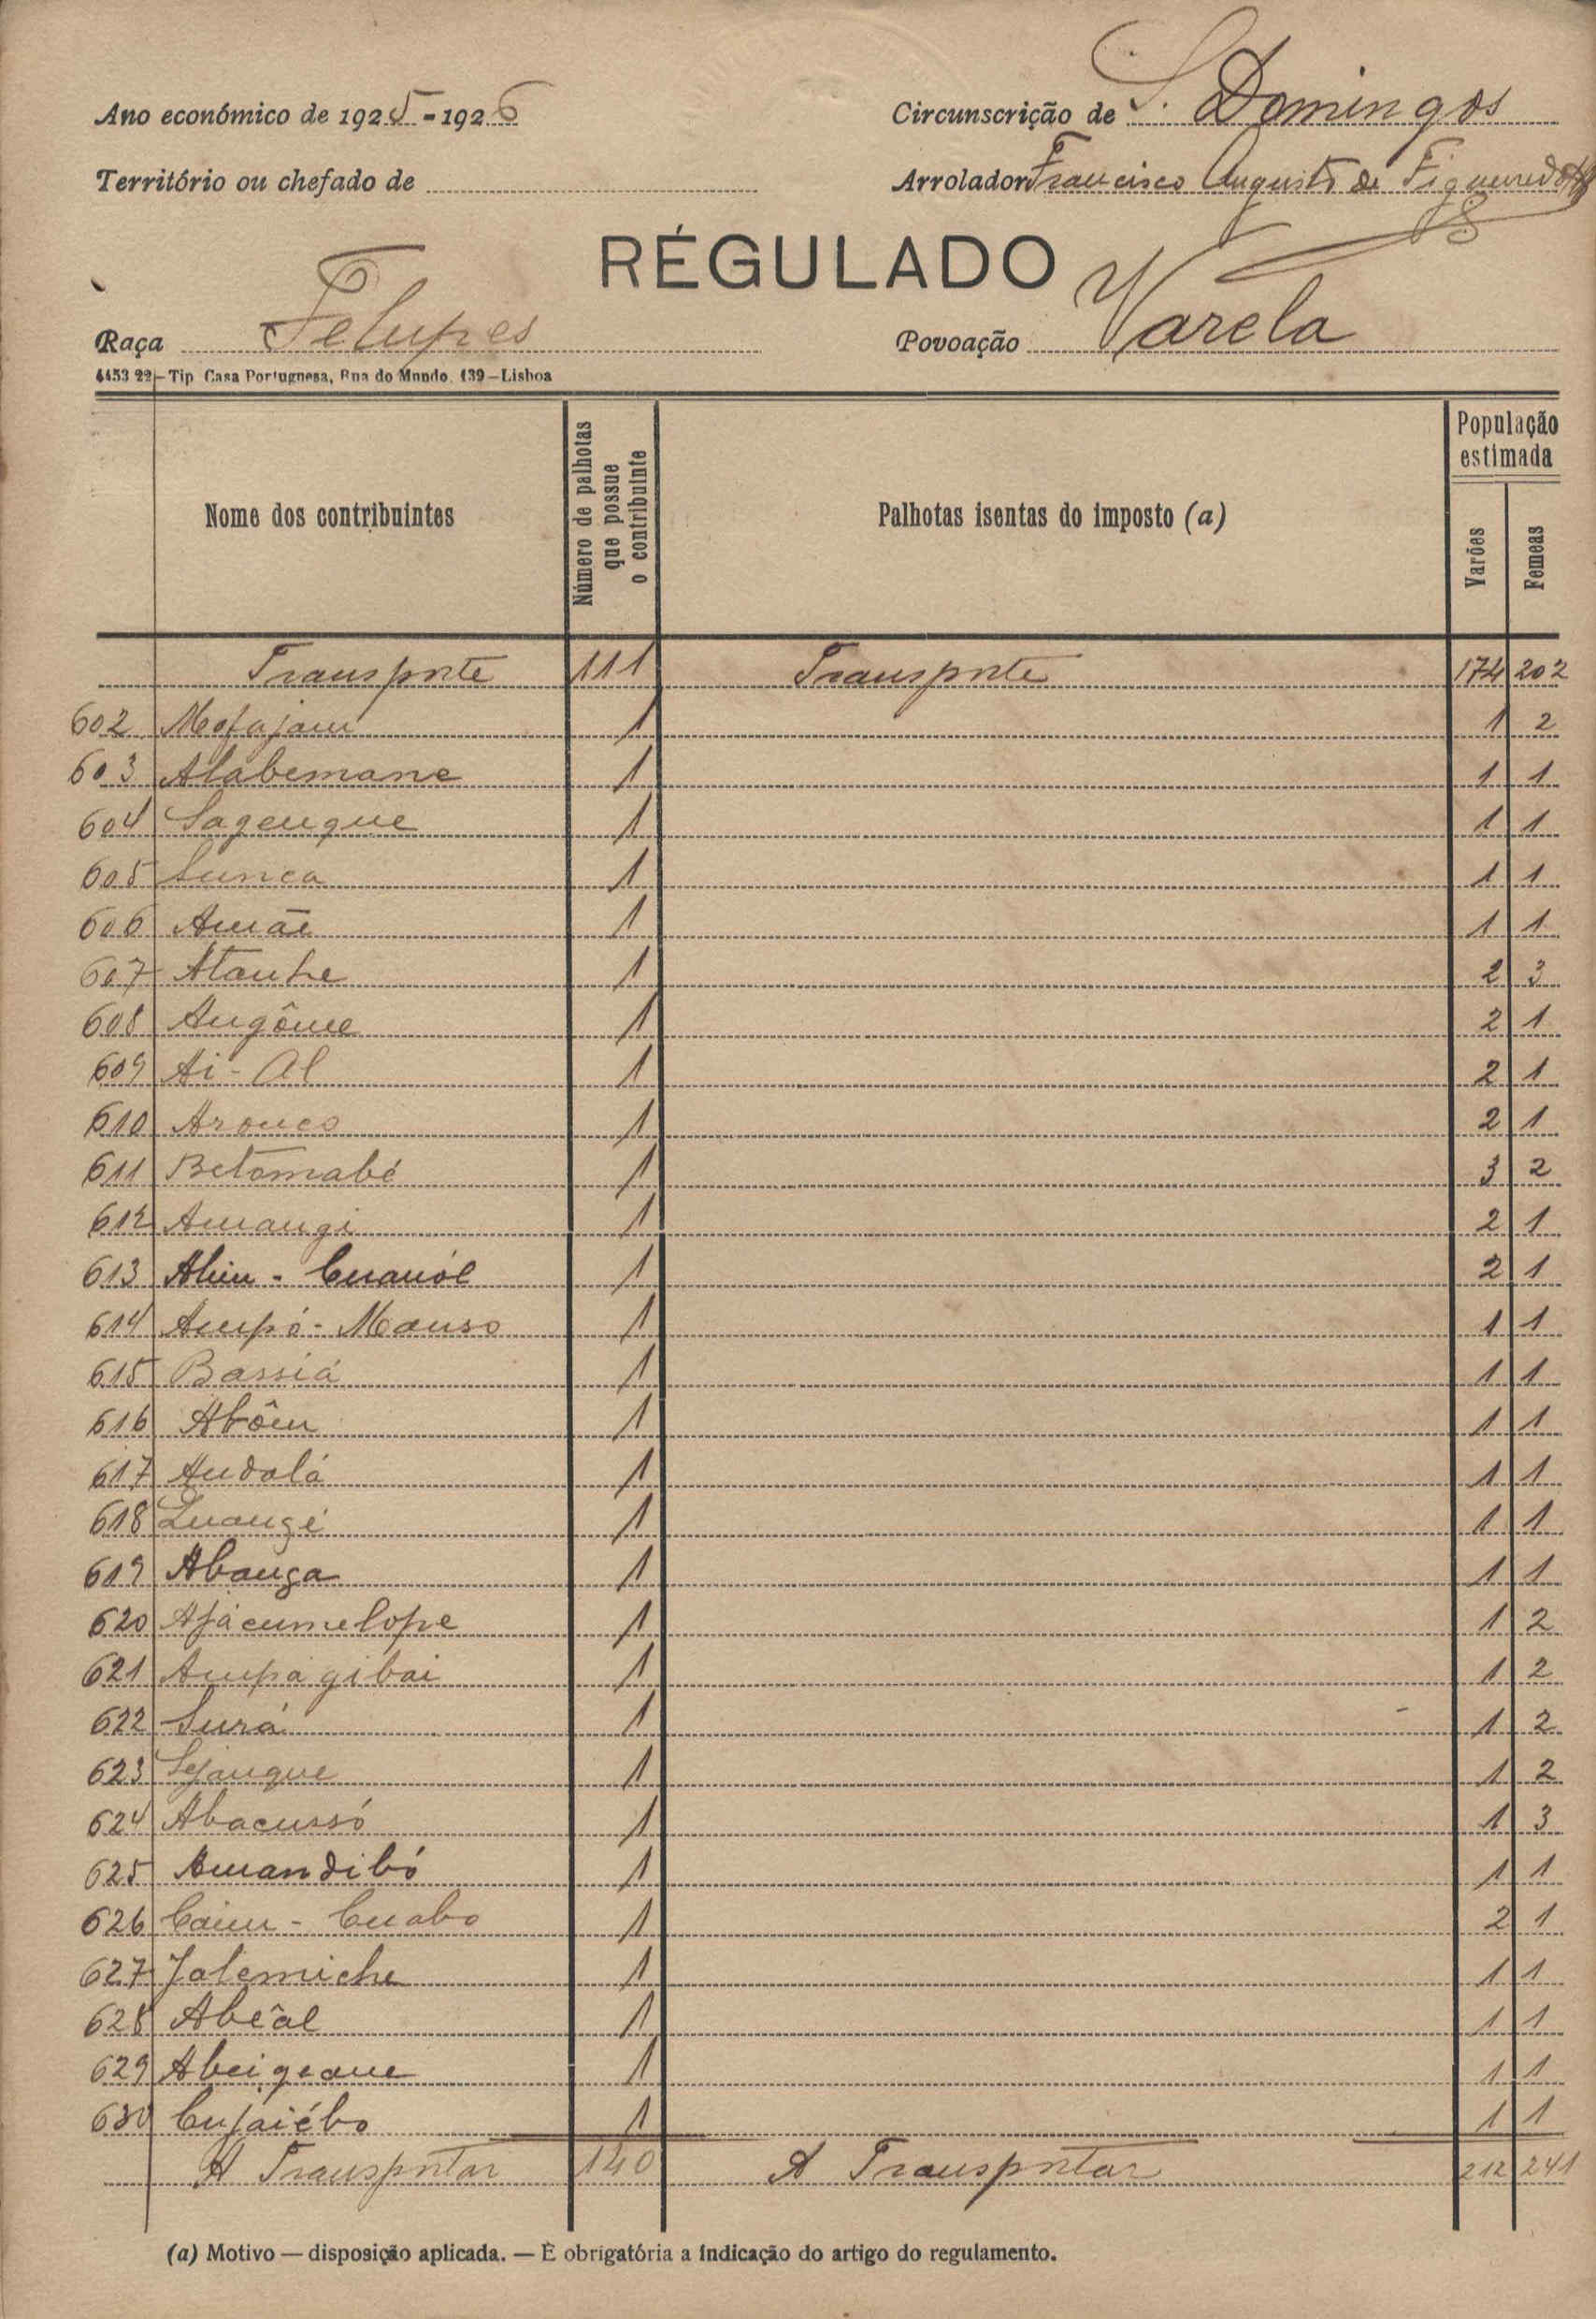 Ano económico de 1925-1926
Circunscrição de S. Domingos
Território ou chefado de
Arrolador Francisco Augusto de Figueiredo
RÉGULADO
Raça Felupes
Povoação Varela
4453 22 – Tip Casa Portuguesa, Rua do Mundo, 139 – Lisboa
Nome dos contribuintes
Número de palhotas que possue o contribuinte
Palhotas isentas do imposto (a)
População estimada
Varões
Femeas
Transporte 111 Transporte 174 202
602 Mofajam 1 1 2
603 Alabemane 1 1 1
604 Sagenque 1 1 1
605 Sunca 1 1 1
606 Amãe 1 1 1
607 Atanhe 1 2 3
608 Angôme 1 2 1
609 Ai-Al 1 2 1
610 Aronco 1 2 1
611 Betomabé 1 3 2
612 Amangi 1 2 1
613 Alim - Cuanól 1 2 1
614 Ampó - Manso 1 1 1
615 Bassiá 1 1 1
616 Abôm 1 1 1
617 Andalá 1 1 1
618 Luangé 1 1 1
619 Abanga 1 1 1
620 Afácumelope 1 1 2
621 Ampágibai 1 1 2
622 Surá 1 1 2
623 Sejanque 1 1 2
624 Abacussó 1 1 3
625 Amandibó 1 1 1
626 Caim - Cuabo 1 2 1
627 Jalemiche 1 1 1
628 Abêal 1 1 1
629 Abeigeane 1 1 1
630 Cujaiébo 1 1 1
A Transportar 140 A Transportar 212 241
(a) Motivo — disposição aplicada. — É obrigatória a indicação do artigo do regulamento.